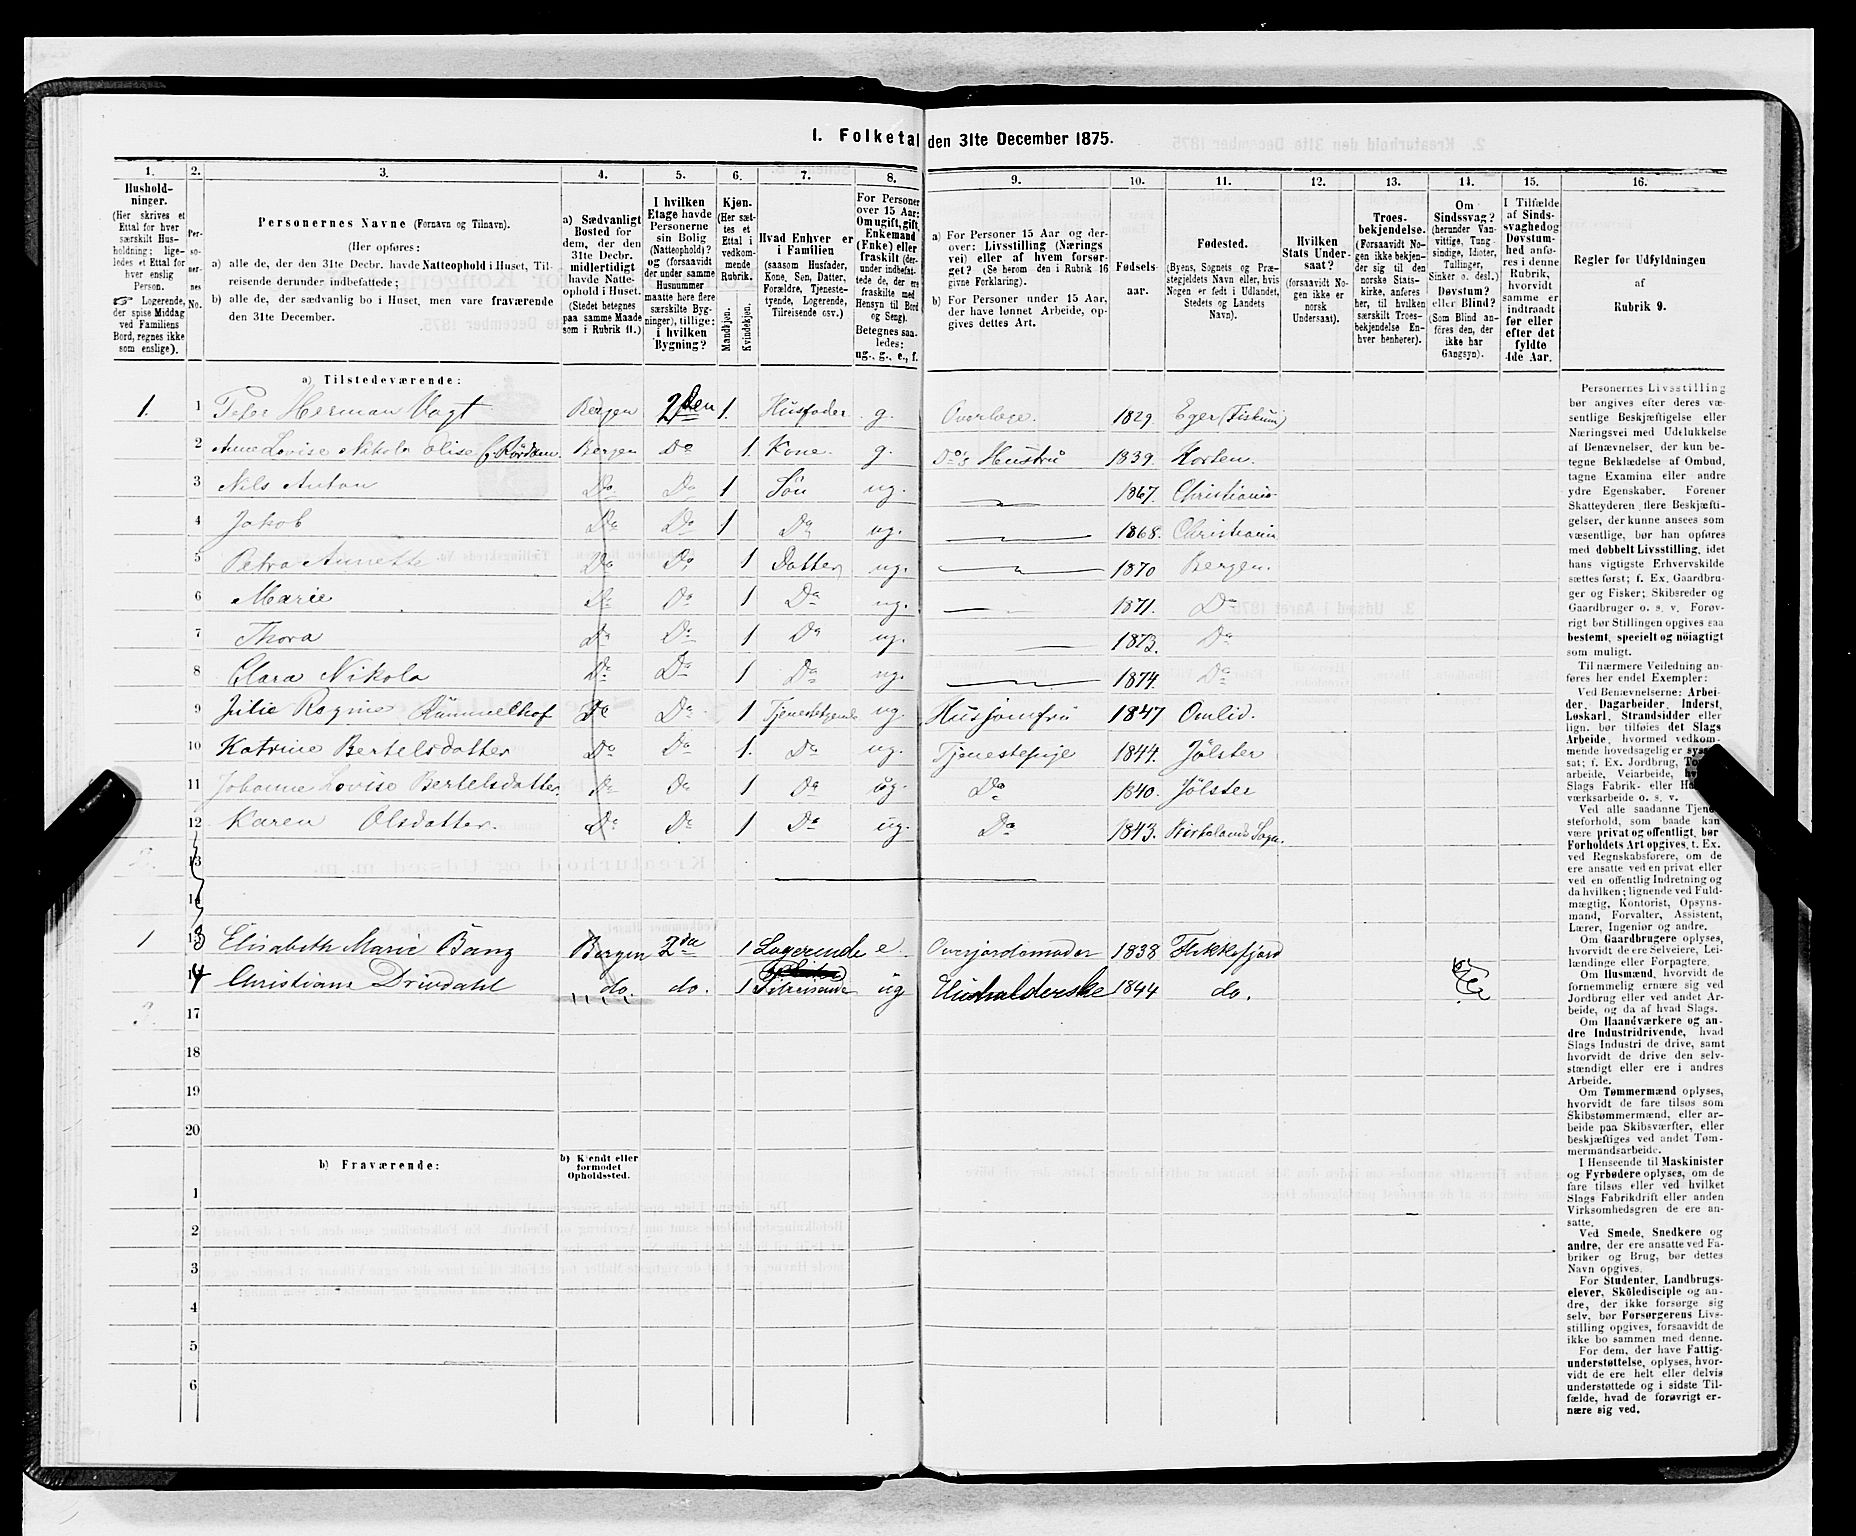 I. Folketal den 31te December 1875.
1. 2. 3. 4. 5. 6. 7. 8. 9. 10. 11. 12. 13. 14. 15. 16.
Hushold-
ninger.
(Her skrives et
Ettal for hver
særskilt Hus-
holdning; lige-
ledes et Ettal for
hver enslig
Person.
☞ Logerende,
der spise Middag
ved Familiens
Bord, regnes ikke
som enslige).
Per-
so-
ner-
nes
No.
Personernes Navne (Fornavn og Tilnavn).
(Her opføres:
a) alle de, der den 31te Decbr. havde Natteophold i Huset, Til-
reisende derunder indbefattede;
b) alle de, der sædvanlig bo i Huset, men vare fraværende
den 31te December.
a) Sædvanligt
Bosted for
dem, der den
31te Decbr.
midlertidigt
havde Natte-
ophold i Huset.
(Stedet betegnes
paa samme Maade
som i Rubrik 11.)
I hvilken
Etage havde
Personerne
sin Bolig
(Natteophold)?
og (forsaavidt
der under samme
Husnummer
maatte høre flere
særskilte Byg-
ninger), tillige:
i hvilken
Bygning?
Kjøn.
(Her sæt-
tes et
Ettal i
vedkom-
mende
Rubrik.
Mandkjøn.
Kvindekjøn.
Hvad Enhver er
i Familien
(saasom Husfader,
Kone, Søn, Datter,
Forældre, Tjeneste-
tyende, Logerende,
Tilreisende osv.)
For Personer
over 15 Aar:
Om ugift, gift,
Enkemand
(Enke) eller
fraskilt (der-
under indbefat-
tede de, der ere
fraskilte med
Hensyn til Bord
og Seng).
Betegnes saa-
ledes:
ug., g., e., f.
a) For Personer 15 Aar og der-
over: Livsstilling (Nærings
vei) eller af hvem forsør-
get? (Se herom den i Rubrik 16
givne Forklaring).
b) For Personer under 15 Aar,
der have lønnet Arbeide, op-
gives dettes Art.
Fødsels-
aar.
Fødested.
(Byens, Sognets og Præ-
stegjeldets Navn eller, hvis
Nogen er født i Udlandet,
Stedets og Landets
Navn).
Hvilken
Stats Under-
saat?
(forsaavidt No-
gen ikke er
norsk
Undersaat).
Troes-
bekjendelse.
(Forsaavidt No-
gen ikke bekjen-
der sig til den
norske Stats-
kirke, anføres
her, til hvilken
særskilt Troes-
bekjendelse En-
hver henhører).
Om
Sindssvag?
(herunder Van-
vittige, Tung-
sindige, Idioter,
Tullinger,
Sinker o. desl.)
Døvstum?
eller Blind?
(Som Blind an-
føres den, der
ikke har
Gangsyn).
I Tilfælde
af Sinds-
svaghed og
Døvstum-
hed anfø-
res i denne
Rubrik,
hvorvidt
samme er
indtraadt
før eller
efter det
fyldte
4de Aar.
Regler for Udfyldningen
af
Rubrik 9.
a) Tilstedeværende:
1. 1 Peter Herman Vogt Bergen 2den 1. Husfader g. Overlæge. 1829. Eger (Fiskum)
2 Anne Lovise Nikola Elise Bergen Do 1. Kone. g. Do's Hustru 1839. Horten.
3 Nils Anton Do Do 1 Søn ug. 1867. Christiania
4 Jakob Do Do 1 Do ug. 1868. Christiania
5 Petra Annette Do Do 1 Datter ug. 1870 Bergen.
6 Marie Do Do 1 Do ug. 1871. Do
7 Thora Do Do 1 Do ug. 1873. Do
8 Clara Nikola Do Do 1 Do ug. 1874. Do
9 Julie Ragine Rümmelhof Do Do 1 Tjenestetyende ug. Husjomfru 1847 Omlid.
10 Katrine Bertelsdatter Do Do 1. Do ug. Tjenestepige 1844. Jølster
11 Johanne Lovise Bertelsdatter. Do Do 1 Do ug. Do 1840. Jølster
12 Karen Olsdatter. Do Do 1 Do ug. Do 1843. Sogn.
2.
13
14
1 3 Elisabeth Marie Bang Bergen 2den 1 Logerende e. Overjordemoder 1838 Flekkefjord
4 Christiane Drivdahl do. do. 1 Tilreisende ug Husholderske 1844 do.
3.
17
18
19
20
b) Fraværende:
b) Kjendt eller
formodet
Opholdssted.
1
2
3
4
5
6
Personernes Livsstilling
bør angives efter deres væ-
sentlige Beskjæftigelse eller
Næringsvei med Udelukkelse
af Benævnelser, der kun be-
tegne Beklædelse af Ombud,
tagne Examina eller andre
ydre Egenskaber. Forener
Skatteyderen flere Beskjæfti-
gelser, der kunne ansees som
væsentlige, bør han opføres
med dobbelt Livsstilling, idet
hans vigtigste Erhvervskilde
sættes først; f. Ex. Gaardbru-
ger og Fisker; Skibsreder og
Gaardbruger o. s. v. Forøv-
rigt bør Stillingen opgives saa
bestemt, specielt og nöiagtigt
som muligt.
Til nærmere Veiledning an-
føres her endel Exempler:
Ved Benævnelserne: Arbei-
der, Dagarbeider, Inderst,
Løskarl, Strandsidder eller
lign. bør tilføies det Slags
Arbeide, hvormed vedkom-
mende hovedsagelig er syssel-
sat; f. Ex. Jordbrug,
arbeide, Veiarbeide,
Slags Fabrik- eller
værksarbeide o. s. v.
Ved alle saadanne Tjene-
steforhold, som baade kan
være privat og offentligt, bør
Forholdets Art opgives, t. Ex.
ved Regnskabsførere, om de
ere ansatte ved en privat eller
ved en offentlig Indretning og
da hvilken; lignende ved Fuld-
mægtig, Kontorist, Opsyns-
mand, Forvalter, Assistent,
Lærer, Ingeniør og andre.
Om Gaardbrugere oplyses,
hvorvidt de ere Selveiere, Lei-
lændinge eller Forpagtere.
Om Husmænd, hvorvidt de
fornemmelig ernære sig ved
Jordbrug eller ved andet Ar-
beide, og da af hvad Slags.
Om Haandværkere og an-
dre Industridrivende, hvad
Slags Industri de drive, samt
hvorvidt de drive den selv-
stændigt eller ere i andres
Arbeide.
Om Tømmermænd oplyses,
hvorvidt de fare tilsøs som
Skibstømmermænd, eller ar-
beide paa Skibsværfter, eller
beskjæftiges ved andet Tøm-
mermandsarbeide.
I Henseende til Maskinister
og Fyrbødere oplyses, om de
fare tilsøs eller ved hvilket
Slags Fabrikdrift eller anden
Virksomhedsgren de ere an-
satte.
Ved Smede, Snedkere og
andre, der ere ansatte ved Fa-
briker og Brug, bør dettes
Navn opgives.
For Studenter, Landbrugs-
elever, Skoledisciple og an-
dre, der ikke forsørge sig
selv, bør Forsørgerens Livs-
stilling opgives, forsaavidt de
ikke bo sammen med denne.
For dem, der have Fattig-
understøttelse, oplyses, hvor-
vidt de ere helt eller delvis
understøttede og i sidste Til-
fælde, hvad de forøvrigt er-
nære sig ved.